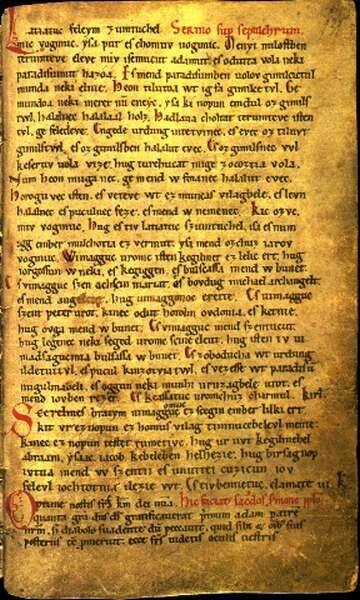 Latiatuc feleym zumtuchel Sermo sup sepulchrum.
mic vogmuc. yſa pur eſ chomuv uogmuc. Menyi miloſtben
terumteve eleve miv iſemucut adamut. eſ odutta vola neki
paradiſumut hazoa. Eſ mend paradiſumben uolov gimilcictul
munda neki elnie. Heon tilutoa wt ig fa gimilce tvl. Ge
mundoa neki meret nu eneyc. yſa ki nopun emdul oz gimilſ
twl. halalnec halalaal holz. Hadlaua choltat terumteve iſten
tvl. ge feledeve. Engede urdung intetvinec. eſ evec oz tiluvt
gimilſtwl. eſ oz gimilſben halalut evec. Eſ oz gimilſnec vvl
keſeruv uola vize. hug turchucat mige zocoztia vola.
Num heon muga nec. ge mend w foianec halalut evec.
Horogu vec iſten. eſ veteve wt ez muncaſ vilagbele. eſ levn
halalnec eſ puculnec feze. eſ mend w nemenec. Kic ozvc.
miv vogmuc. Hug eſ tiv latiatuv szumtuchel. iſa eſ num
igg ember mulchotia ez vermut. yſa mend ozchuz iarov
vogmuc. Wimagguc uromv iſten kegilmet ez lelic ert. hug
iorgoſſun w neki. eſ kegiggen. eſ bulſaſſa mend w bunet.
Eſ vimagguc szen achſcin mariat. eſ bovdug michael archangelt.
eſ mend angelcut. hug uimaggonoc erette. Eſ uimagguc
szent peter urot. kinec odut hotolm ovdonia. eſ ketnie.
hug ovga mend w bunet. Eſ vimagguc mend szentucut.
hug legenec neki ſeged uromc ſcine eleut. hug iſten iv ui
madſagucmia bulſaſſa w bunet. Eſ zoboducha wt urdung
ildetuitvl. eſ pucul kinzotviatwl. eſ vezeſſe wt paradiſu
nugulmabeli. eſ oggun neki munhi uruzagbele utot. eſ
mend iovben rezet. Eſ keaſſatuc uromchuz charmul. kirl.
Scerelmes bratym uimagguc eſ szegin ember lilki ert.
kit vr ez nopun ez homus vilag timnucebeleul mente.
kinec ez nopun teſtet tumetivc. hug ur uvt kegilmehel
abraam. yſaac. iacob. kebeleben helhezie. hug birſagnop
ivtva mend w szentii eſ unuttei cuzicun iov
felevl iochtotnia ilezie wt. Eſ tivbennetuc. clamate iii. k.